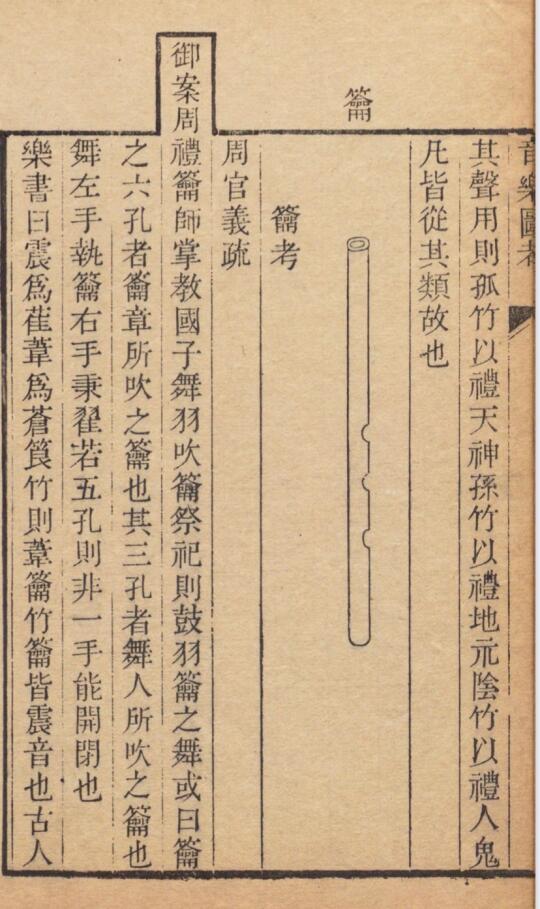 音樂圖考
其聲用則孤竹以禮天神孫竹以禮地元陰竹以禮人鬼
凡皆從其類故也
籥
籥考
周官義疏
御案周禮籥師掌教國子舞羽吹籥祭祀則鼓羽籥之舞或曰籥
之六孔者籥章所吹之籥也其三孔者舞人所吹之籥也
舞左手執籥右手秉翟若五孔則非一手能開閉也
樂書曰震爲萑葦爲蒼筤竹則葦籥竹籥皆震音也古人